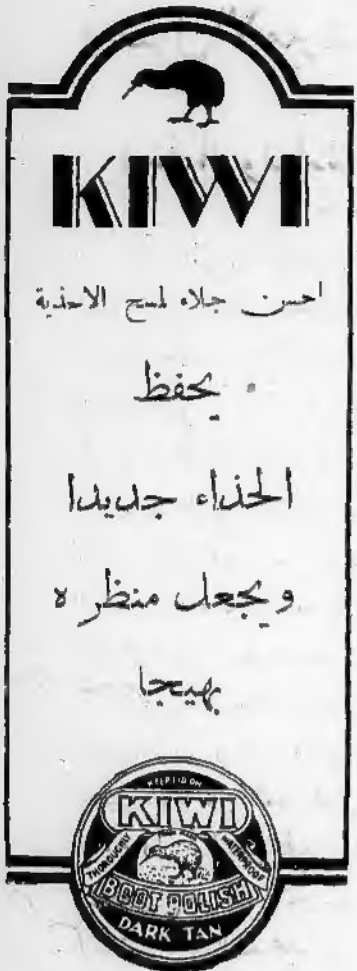 KIWI
احسن جلاء لمسح الاحذية
يحفظ
الحذاء جديدا
ويجعل منظره
بهيجا
KEEP LID ON
KIWI
THOROUGHLY WATERPROOF
BOOT POLISH
DARK TAN